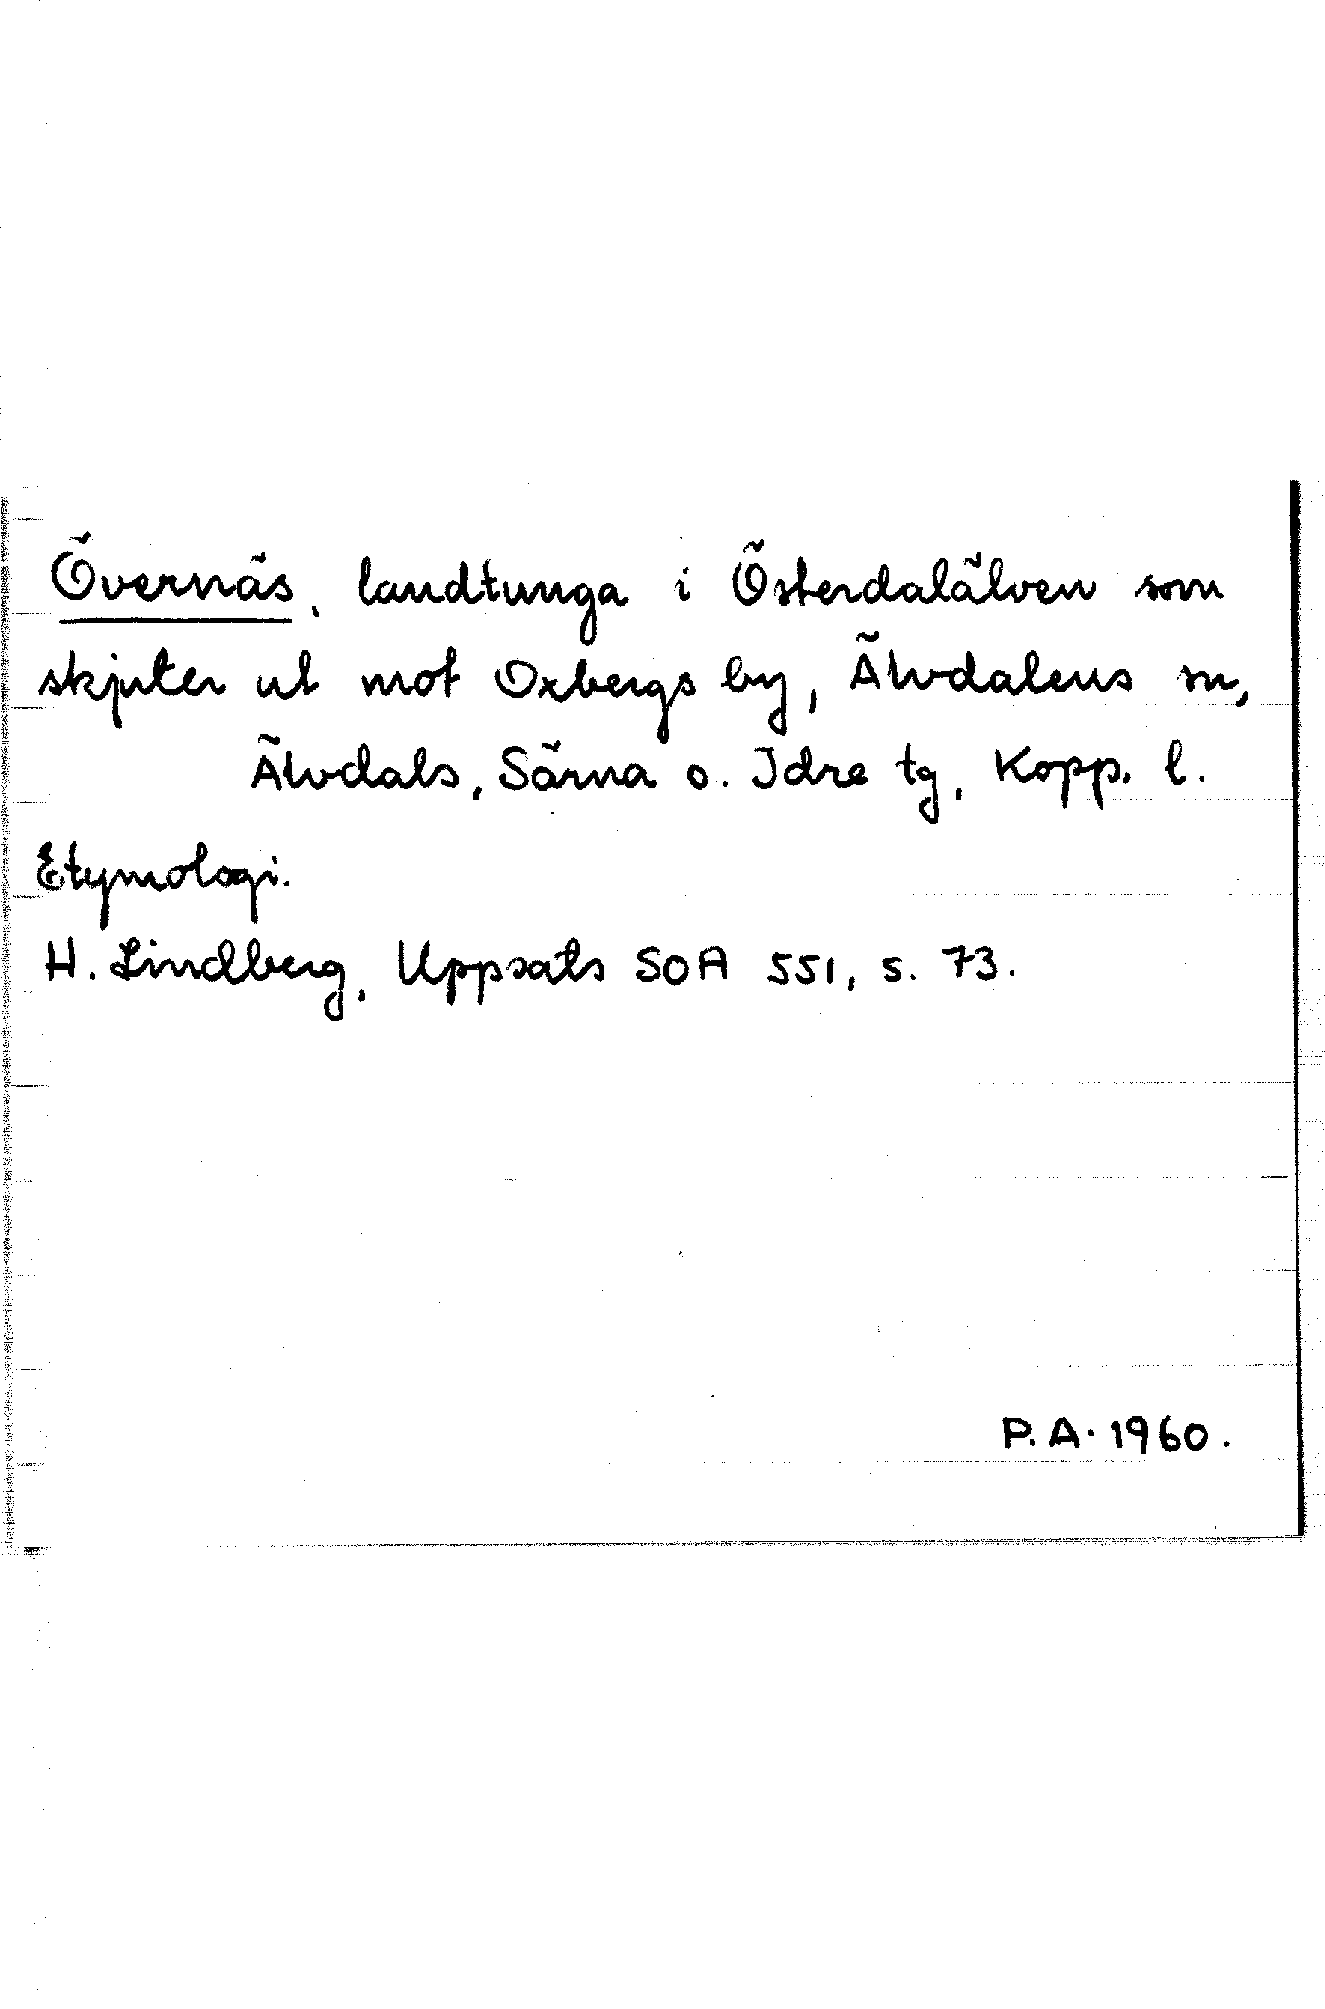 Övernäs, landtunga i Österdalälven som
skjuter ut mot Oxbergs by, Älvdalens sn,
Älvdals, Särna o. Idre tg, Kopp. l.
Etymologi.
H. Lindberg, Uppsats SOA 551, s. 73.
P.A. 1960.